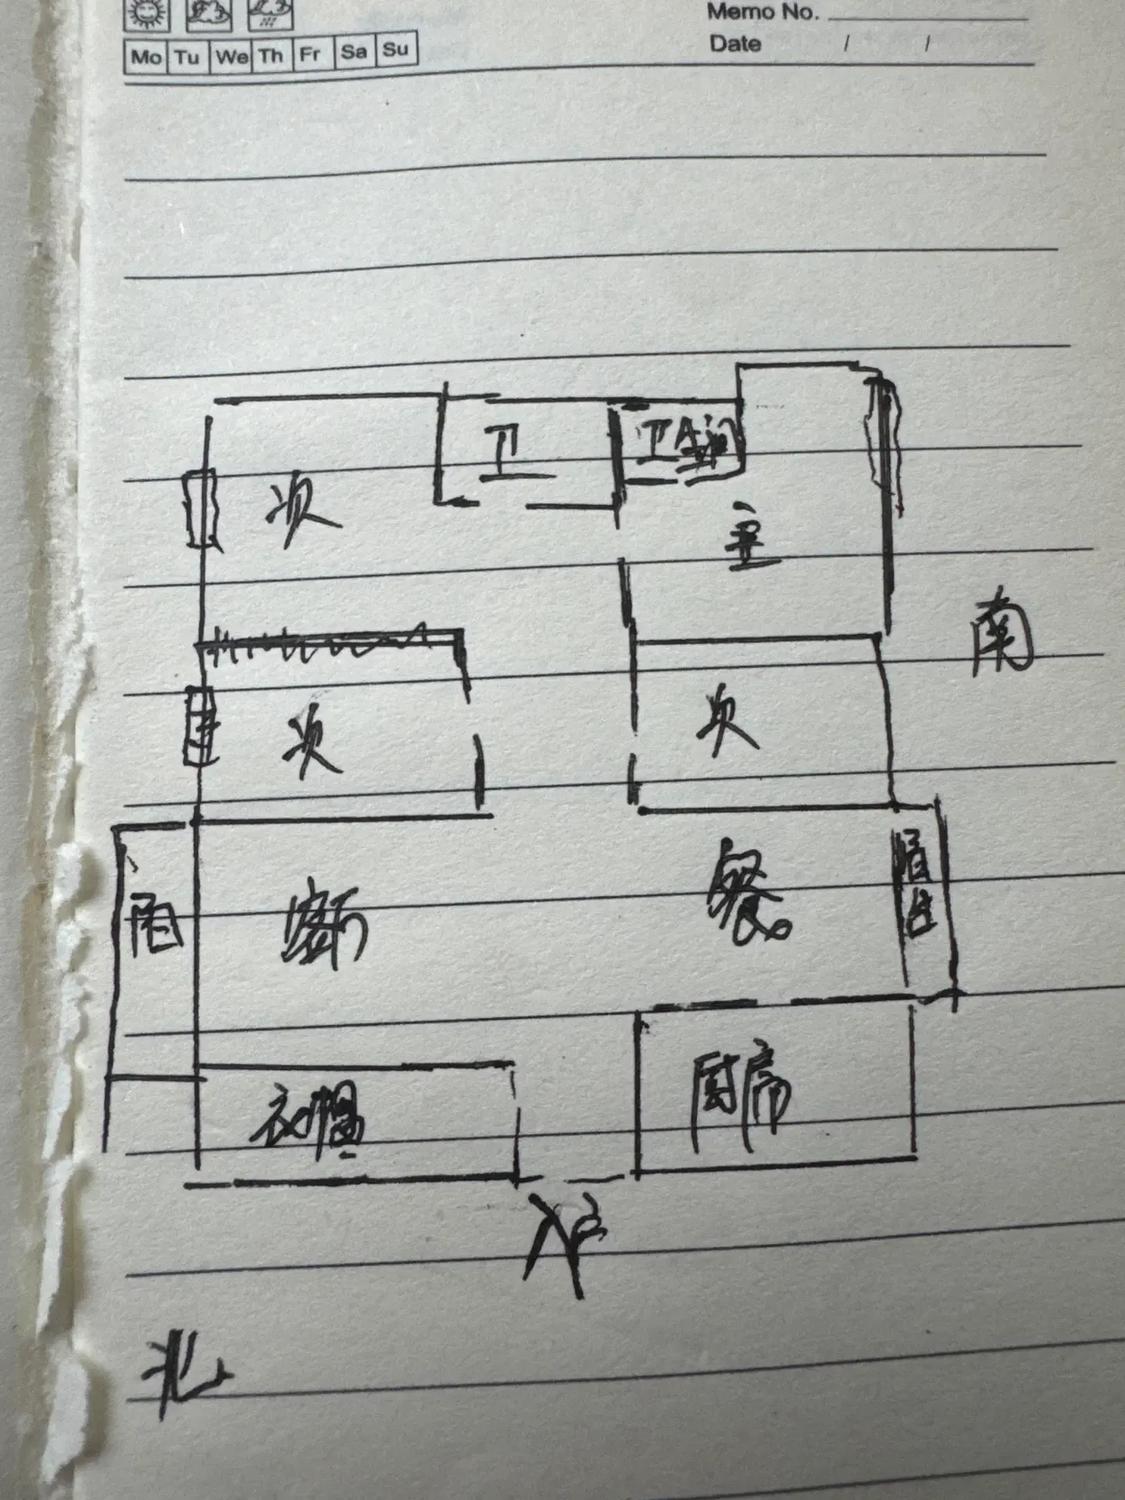 Memo No.
Mo Tu We Th Fr Sa Su
Date / /
卫
卫
次
主
南
次
次
阳
客厅
餐
阳台
衣帽
厨房
入户
北